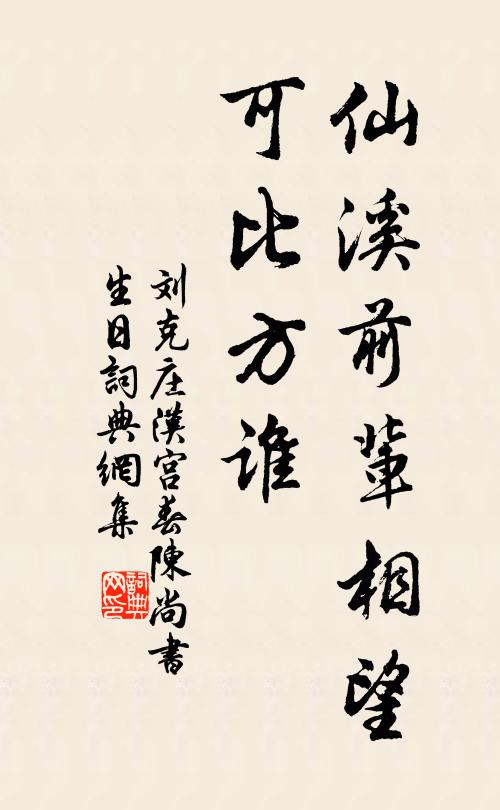 仙溪前輩相望
可比方誰
刘克庄漢宫春陳尚書
生日詞典網集
詞典
网印